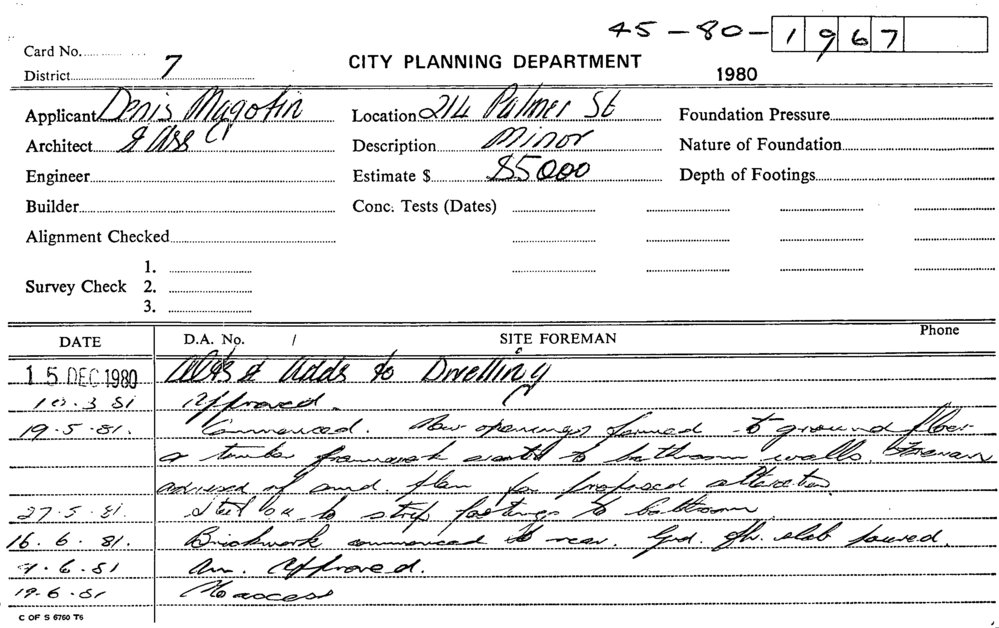 45-80-1967
Card No.
District 7
CITY PLANNING DEPARTMENT
1980
Applicant Denis Mygotin Location 214 Palmer St Foundation Pressure
Architect & Ass Description Minor Nature of Foundation
Engineer Estimate $ $5000 Depth of Footings
Builder Conc. Tests (Dates)
Alignment Checked
1.
Survey Check 2.
3.
DATE D.A. No. / SITE FOREMAN Phone
15 DEC 1980 Alts & Adds to Dwelling
10.3.81 Approved.
19.5.81. Commenced. New openings formed to ground floor
& timber framework to bathroom walls. Foreman
advised of amd. plan for proposed alteration
27.5.81. Steel ok to strip footings to bathroom
16.6.81. Brickwork commenced to rear. Grd. flr. slab poured.
9.6.81 Am. Approved.
19.6.81 No access
C OF S 6760 T6